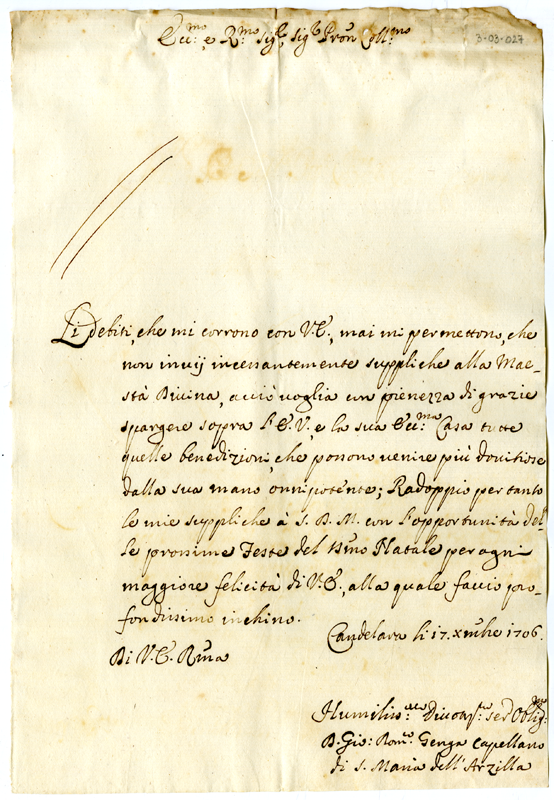 Ecc:mo e Rmo Sigr, sigr Pron Coll:mo
3-03-027
Li debiti, che mi corrono con V.E., mai mi permettono, che
non invij incessantemente suppliche alla Mae-
stà Divina, acciò voglia con pienezza di grazie
spargere sopra l'E.V. e la sua Ecc:ma Casa tutte
quelle benedizioni, che possono venire più doviziose
dalla sua mano onnipotente; Radoppio per tanto
le mie suppliche à S. D. M. con l'opportunità del-
le prossime Feste del ssmo Natale per ogni
maggiore felicità di V.E., alla quale faccio pro-
fondissimo inchino.
Candelara li 17. Xmbre 1706.
Di V.E. Rma
Humiliss:mo Divotiss:mo ser Oblig:mo
D. Gio: Bom:co Genga Capellano
di S. Maria dell'Arzilla